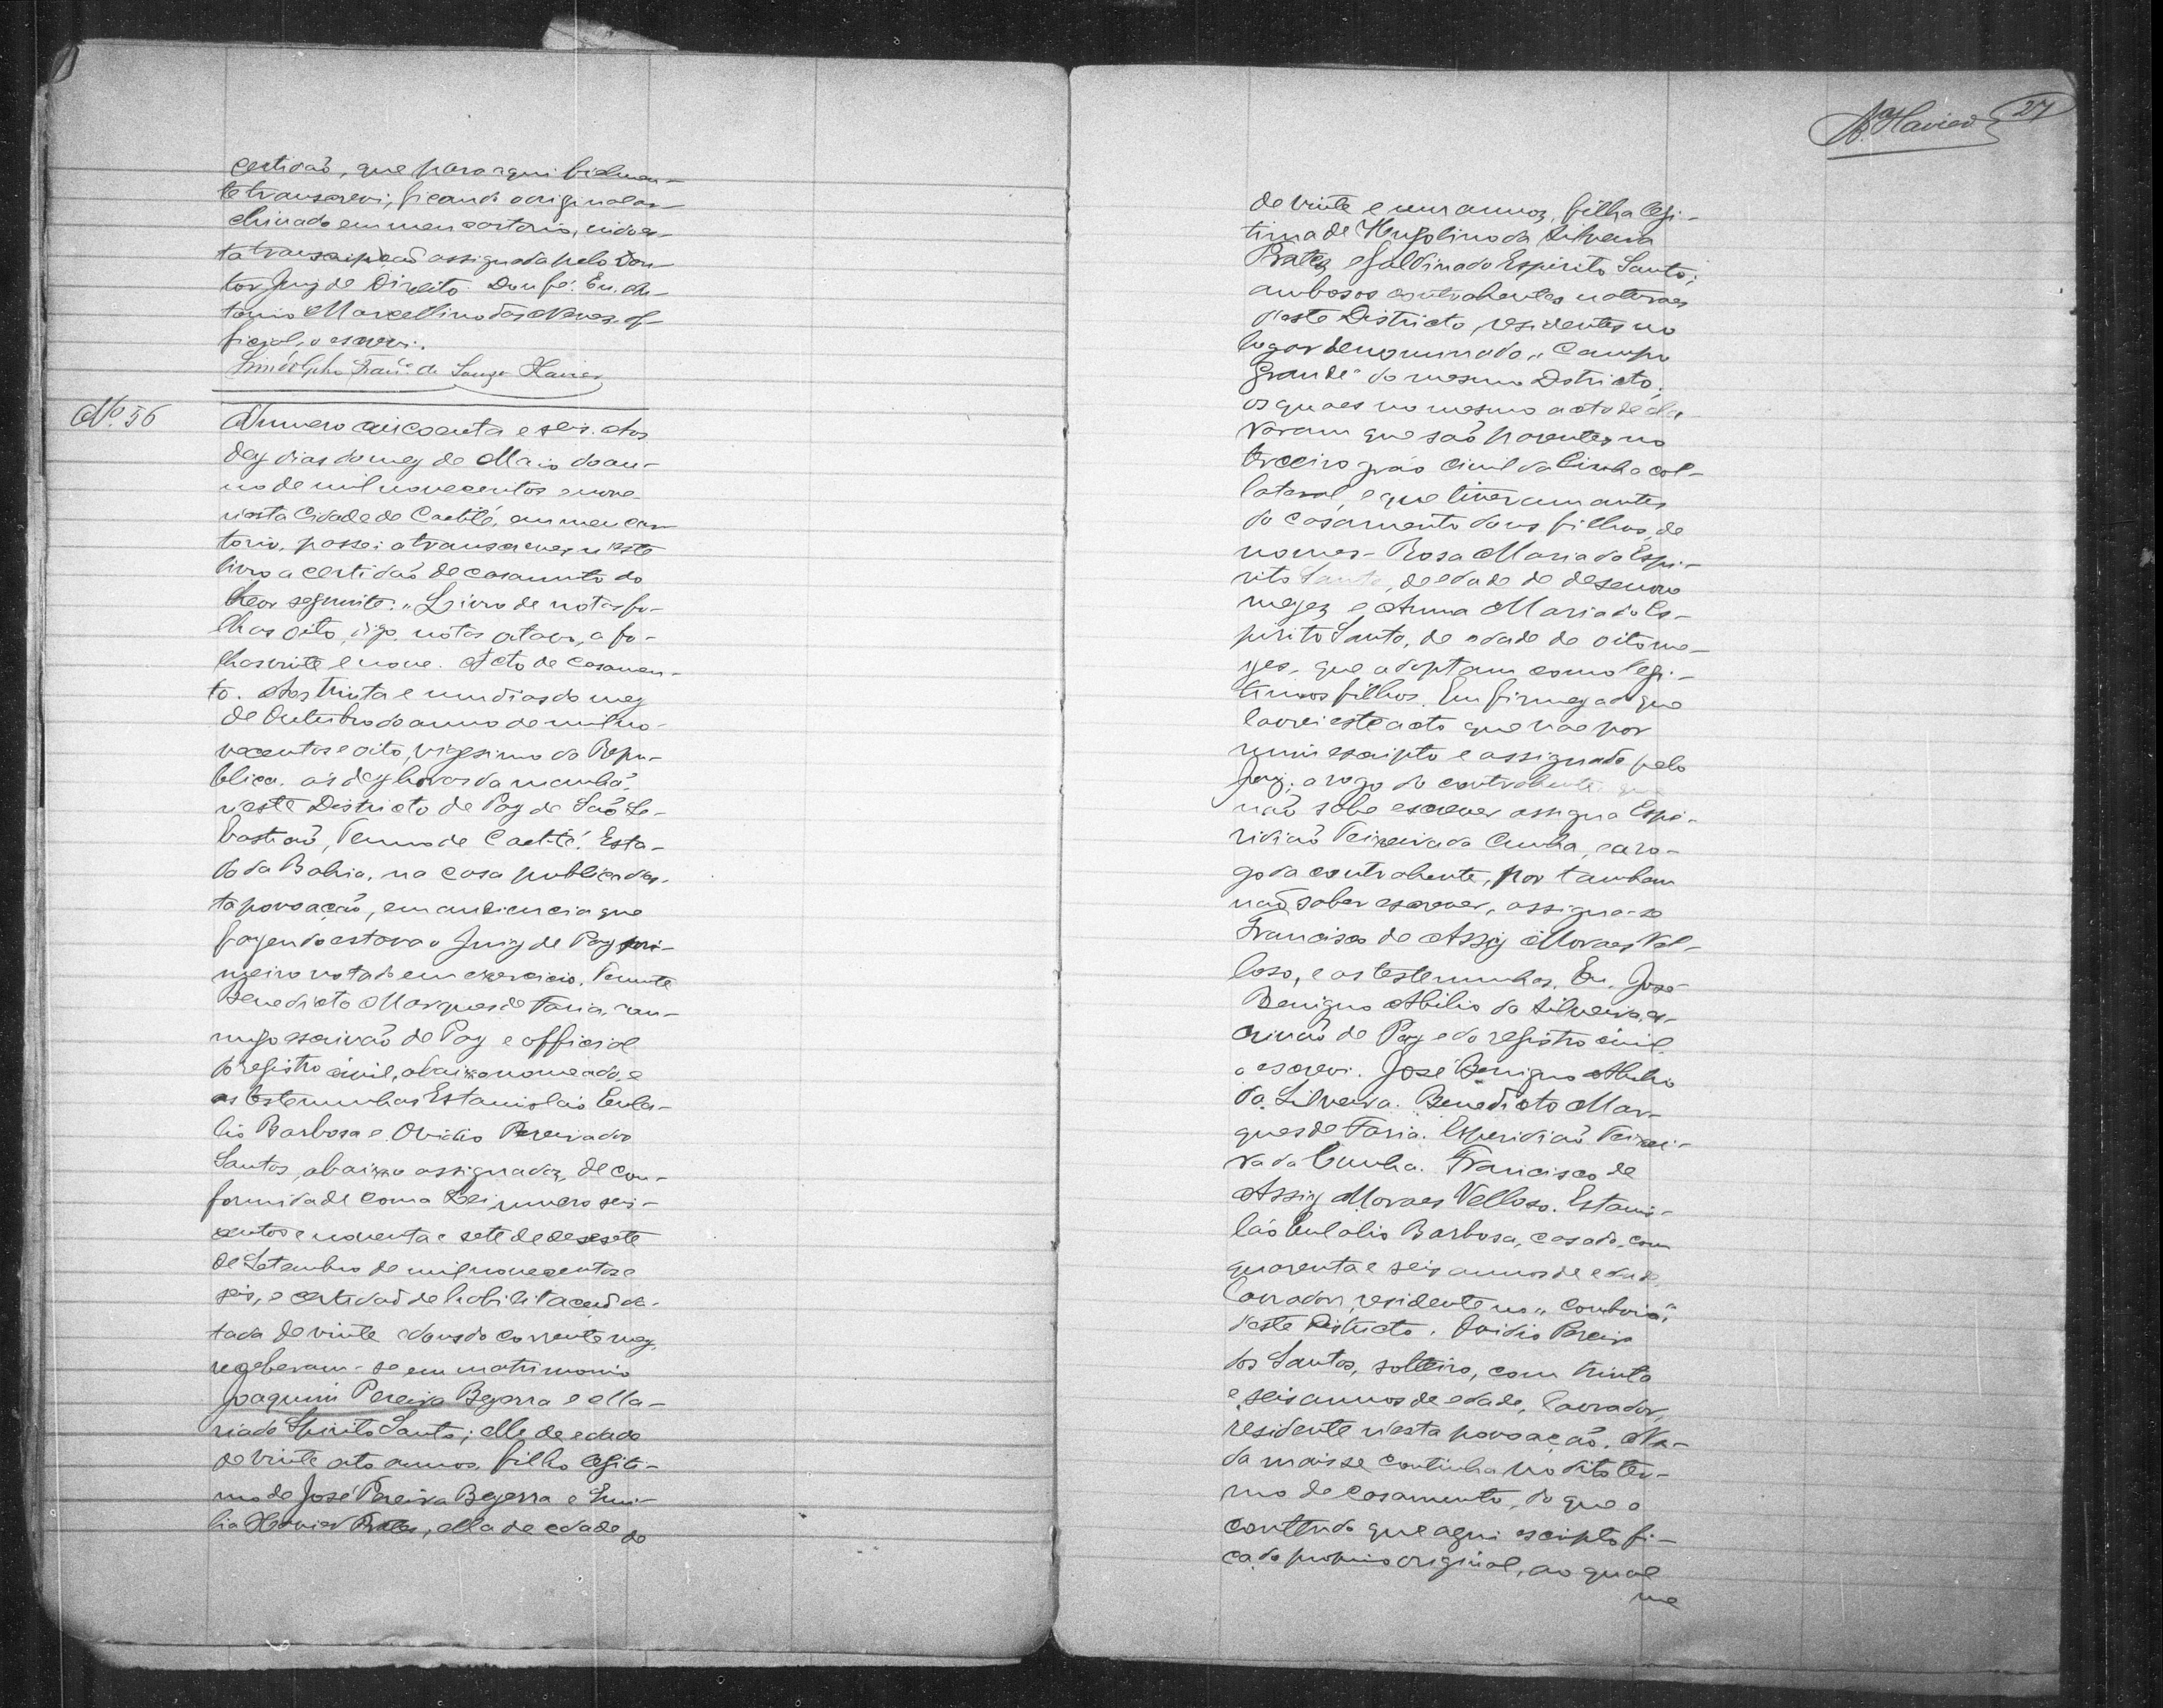 certidaõ, que para aqui fielmen-
te transcrevi, ficando o original ar-
chivado em meu cartorio, indo es-
ta transcripçaõ assignada pelo Dou-
tor Juiz de Direito. Dou fé. Eu, An-
tonio Marcellino das Neves, of-
ficial, o escrevi.
Lindólpho Franco. de Souza Xavier
No. 56
Numero cincoenta e seis. Aos
dez dias do mez de Maio do an-
no de mil novecentos e nove
n'esta Cidade de Caetité, em meu car-
torio, passei a transcrever n'este
livro a certidaõ de casamento do
theor seguinte: "Livro de notas fo-
lhas oito, digo, notas oitavo, a fo-
lhas vinte e nove. Acto de casamen-
to. Aos trinta e um dias do mez
de Outubro do anno de mil no-
vecentos e oito, vigesimo da Repu-
blica, ás dez horas da manhã,
n'este Districto de Paz de Saõ Se-
bastiaõ, Termo de Caetité, Esta-
do da Bahia, na casa publica des-
ta povoaçaõ, em audiencia que
fazendo estava o Juiz de Paz pri-
meiro votado em exercicio, Tenente
Benedicto Marques de Faria, com-
migo escrivaõ de Paz e official
do registro civil, abaixo nomeado, e
as testemunhas Estanislaõ Eula-
lio Barbosa e Ovidio Pereira dos
Santos, abaixo assignados, de con-
formidade com a Lei numero seis-
centos e noventa e sete de desesete
de Setembro de mil novecentos e
seis, e certidaõ de habilitaçaõ da-
tada de vinte e dous do corrente mez,
receberam-se em matrimonio
Joaquim Pereira Bezerra e Ma-
ria do Spirito Santo; elle de edade
de vinte oito annos, filho legiti-
mo de José Pereira Bezerra e Emi-
lia Xavier Prates, ella de edade
de
Xavier 27
de vinte e um annos, filha legi-
tima de Hugolino da Silveira
Prates e Galdina do Espirito Santo;
ambos os contrahentes naturaes
d'este Districto, residentes no
logar denominado "Campo
Grande" do mesmo Dstricto,
os quaes no mesmo acto decla-
raram que saõ parentes no
terceiro gráo civil da linha col-
lateral, e que tiveram antes
do casamento dous filhos, de
nomes - Rosa Maria do Espi-
rito Santo, de edade de desenove
mezes e Anna Maria do Es-
pirito Santo, de edade de oito me-
zes, que adoptam como legi-
timos filhos. Em firmeza do que
lavrei este acto que vae por
mim escripto e assignado pelo
Juiz; a rogo do contrahente que
naõ sabe escrever assigna Espe-
ridiaõ Teixeira da Cunha, e a ro-
go da contrahente, por tambem
naõ saber escrever, assigna-se
Francisco de Assiz Moraes Vel-
loso, e as testemunhas. Eu, José
Benigno Abilio da Silveira, es-
crivaõ de Paz e do registro civil
o escrevi. José Benigno Abilio
da Silveira. Benedicto Mar-
ques de Faria. Esperidiaõ Teixei-
ra da Cunha. Francisco de
Assiz Moraes Velloso. Estanis-
láo Eulalio Barbosa, casado, com
quarenta e seis annos de edade,
lavrador, residente no
d'este Districto. Ovidio Pereira
dos Santos, solteiro, com trinta
e seis annos de edade, lavrador,
residente n'esta povoaçaõ. Na-
da mais se continha no dito ter-
mo de casamento, do que o
conteudo que aqui escripto fi-
ca do proprio original, ao qual
me